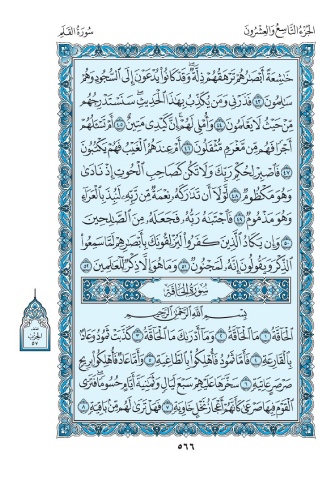 الجزء التاسع والعشرون
سورة القلم
خَٰشِعَةً أَبْصَٰرُهُمْ تَرْهَقُهُمْ ذِلَّةٌ ۖ وَقَدْ كَانُوا۟ يُدْعَوْنَ إِلَى ٱلسُّجُودِ وَهُمْ
سَٰلِمُونَ ٤٣ فَذَرْنِى وَمَن يُكَذِّبُ بِهَٰذَا ٱلْحَدِيثِ ۖ سَنَسْتَدْرِجُهُم
مِّنْ حَيْثُ لَا يَعْلَمُونَ ٤٤ وَأُمْلِى لَهُمْ ۚ إِنَّ كَيْدِى مَتِينٌ ٤٥ أَمْ تَسْـَٔلُهُمْ
أَجْرًا فَهُم مِّن مَّغْرَمٍ مُّثْقَلُونَ ٤٦ أَمْ عِندَهُمُ ٱلْغَيْبُ فَهُمْ يَكْتُبُونَ
٤٧ فَٱصْبِرْ لِحُكْمِ رَبِّكَ وَلَا تَكُن كَصَاحِبِ ٱلْحُوتِ إِذْ نَادَىٰ
وَهُوَ مَكْظُومٌ ٤٨ لَّوْلَآ أَن تَدَٰرَكَهُۥ نِعْمَةٌ مِّن رَّبِّهِۦ لَنُبِذَ بِٱلْعَرَآءِ
وَهُوَ مَذْمُومٌ ٤٩ فَٱجْتَبَٰهُ رَبُّهُۥ فَجَعَلَهُۥ مِنَ ٱلصَّٰلِحِينَ
٥٠ وَإِن يَكَادُ ٱلَّذِينَ كَفَرُوا۟ لَيُزْلِقُونَكَ بِأَبْصَٰرِهِمْ لَمَّا سَمِعُوا۟
ٱلذِّكْرَ وَيَقُولُونَ إِنَّهُۥ لَمَجْنُونٌ ٥١ وَمَا هُوَ إِلَّا ذِكْرٌ لِّلْعَٰلَمِينَ ٥٢
سورة الحاقة
بِسْمِ ٱللَّهِ ٱلرَّحْمَٰنِ ٱلرَّحِيمِ
ٱلْحَآقَّةُ ١ مَا ٱلْحَآقَّةُ ٢ وَمَآ أَدْرَىٰكَ مَا ٱلْحَآقَّةُ ٣ كَذَّبَتْ ثَمُودُ وَعَادٌۢ
بِٱلْقَارِعَةِ ٤ فَأَمَّا ثَمُودُ فَأُهْلِكُوا۟ بِٱلطَّاغِيَةِ ٥ وَأَمَّا عَادٌ فَأُهْلِكُوا۟ بِرِيحٍ
صَرْصَرٍ عَاتِيَةٍ ٦ سَخَّرَهَا عَلَيْهِمْ سَبْعَ لَيَالٍ وَثَمَٰنِيَةَ أَيَّامٍ حُسُومًا فَتَرَى
ٱلْقَوْمَ فِيهَا صَرْعَىٰ كَأَنَّهُمْ أَعْجَازُ نَخْلٍ خَاوِيَةٍ ٧ فَهَلْ تَرَىٰ لَهُم مِّنۢ بَاقِيَةٍ ٨
الحزب
٥٧
٥٦٦